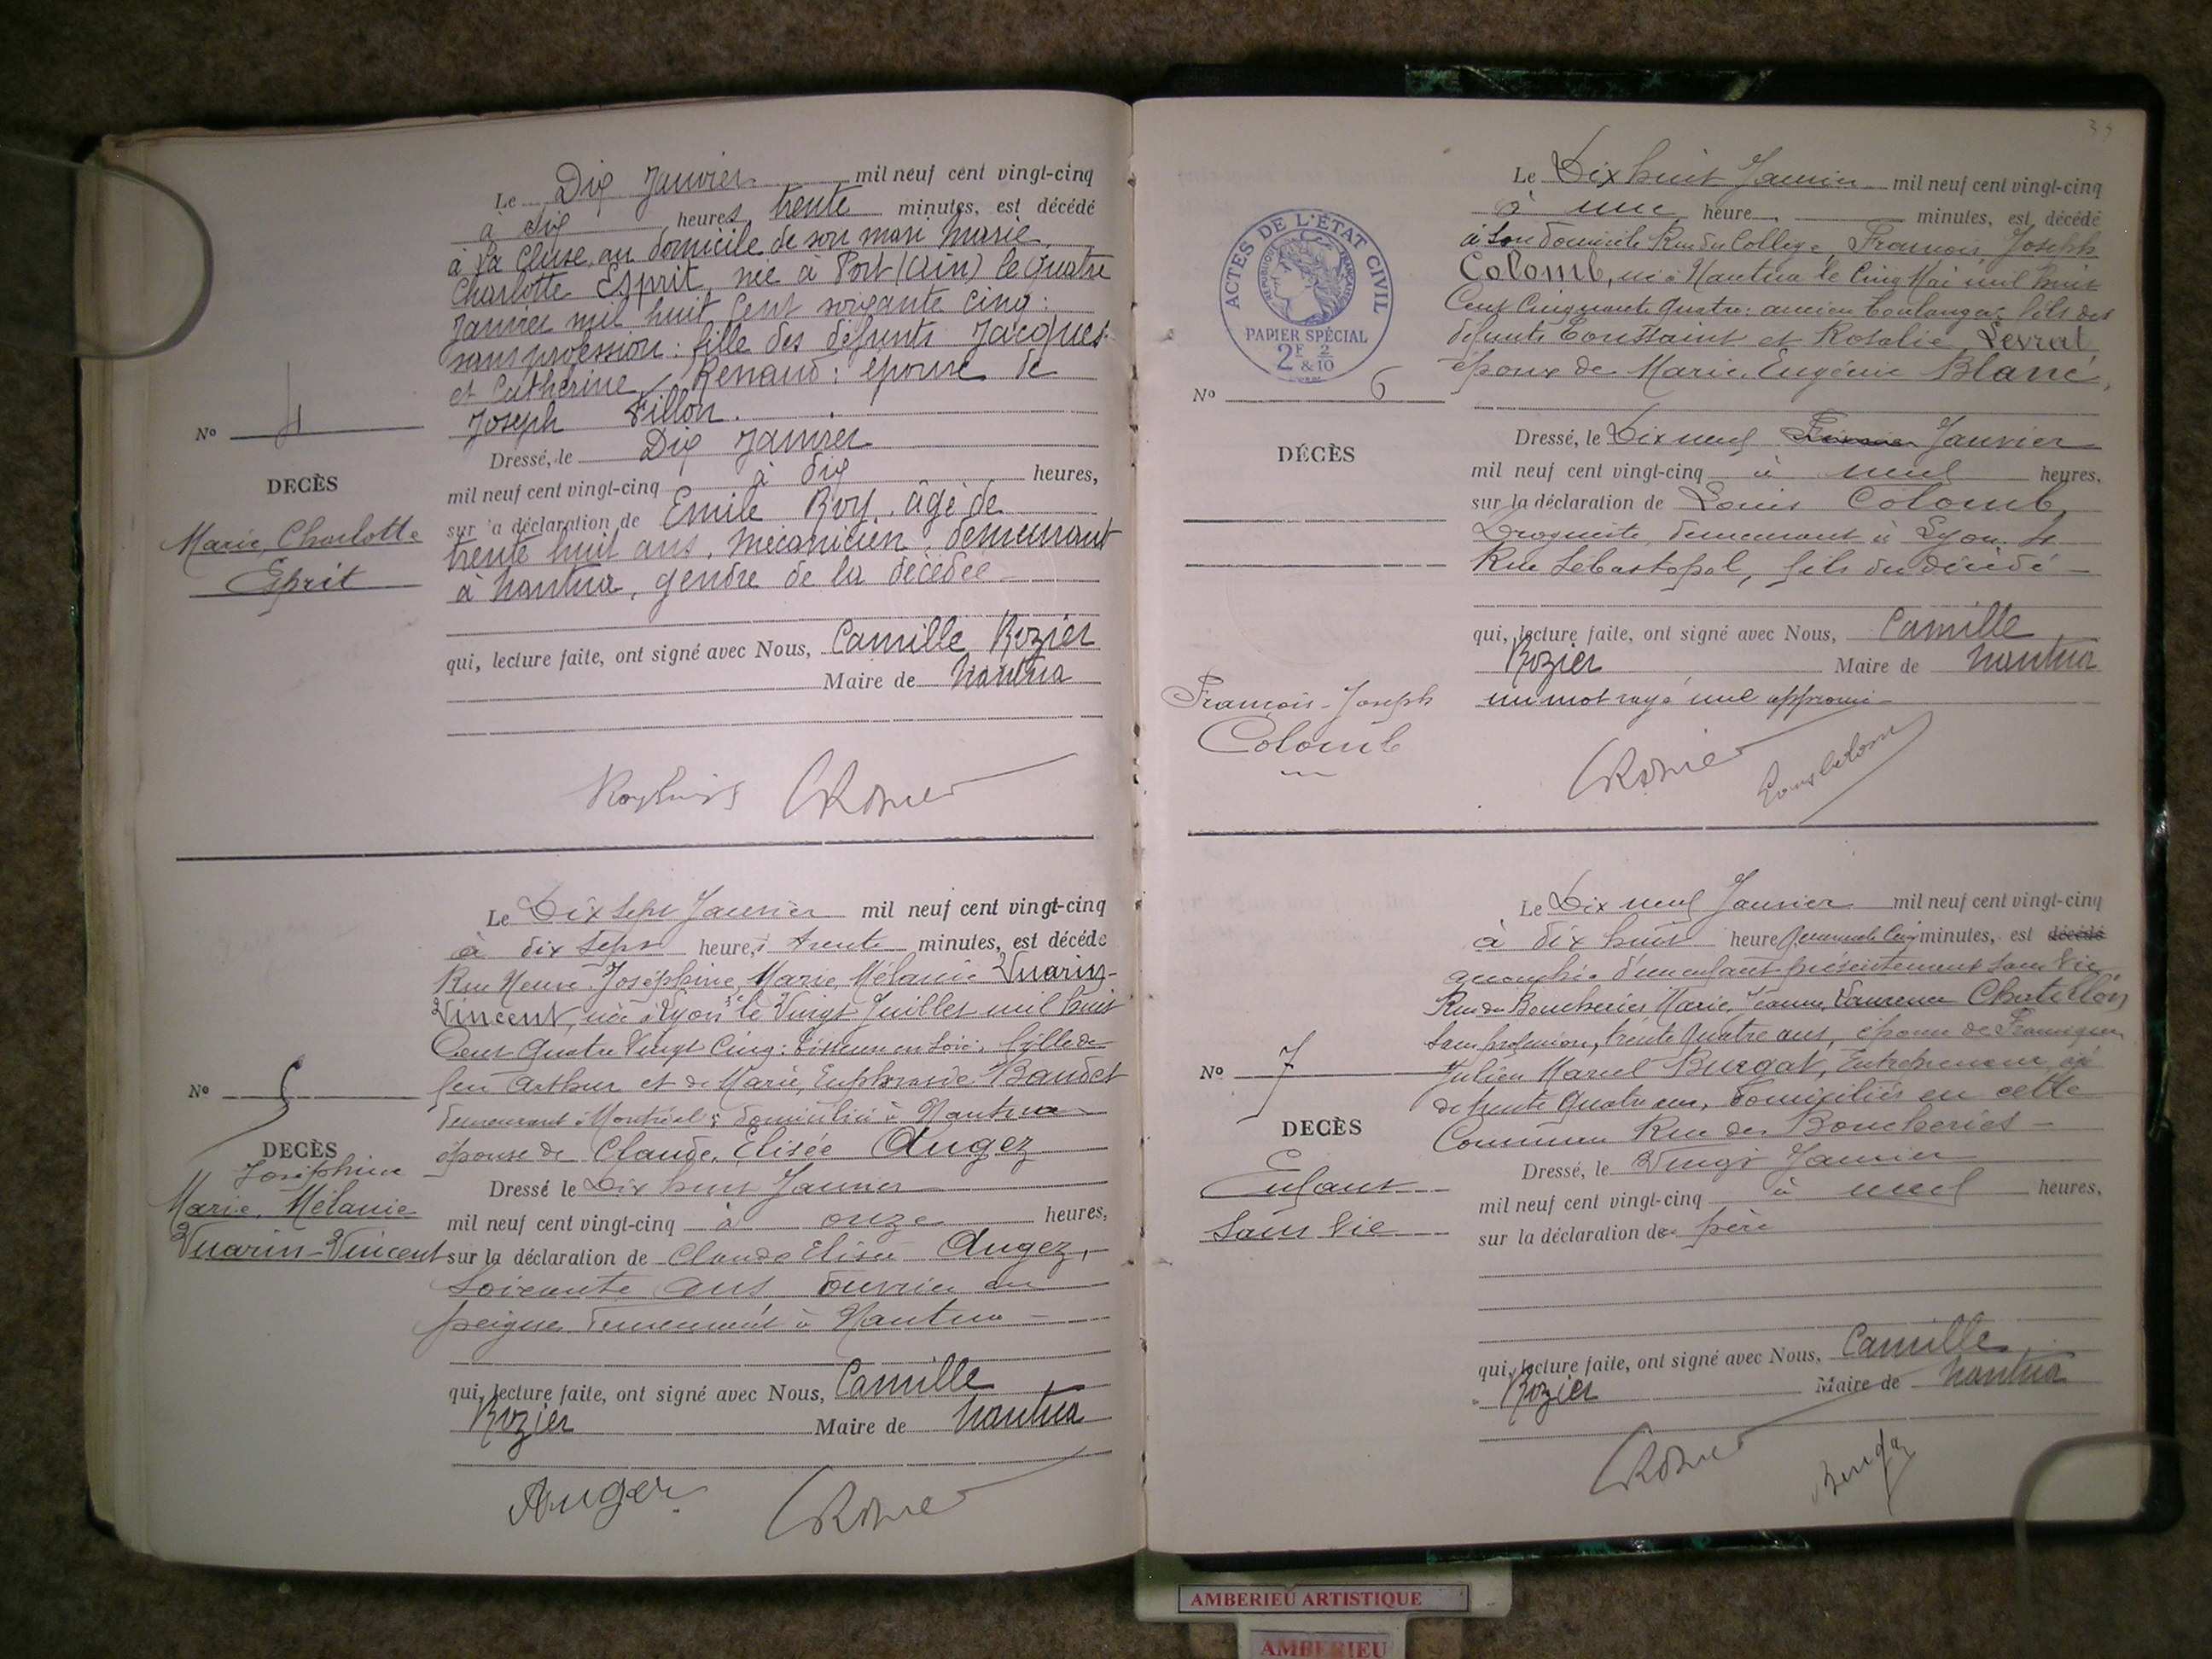 Le Dix Janvier mil neuf cent vingt-cinq
à dix heures trente minutes, est décédé
à La Cluse, au domicile de son mari Marie,
Charlotte Esprit, née à Port (Ain) le quatre
Janvier mil huit cent soixante cinq :
sans profession : fille des défunts Jacques
et Catherine Renaud : épouse de
Joseph Fillon.
Nº 4
Dressé, le Dix Janvier
DECÈS
mil neuf cent vingt-cinq à dix heures,
Marie, Charlotte
Esprit
sur la déclaration de Emile Roy, âgé de
trente huit ans, mécanicien, demeurant
à Nantua, gendre de la décédée
qui, lecture faite, ont signé avec Nous, Camille Rozier
Maire de Nantua
CRozier
Le Dix sept Janvier mil neuf cent vingt-cinq
à dix sept heures trente minutes, est décédé
Rue Neuve, Joséphine, Marie, Mélanie Vuarin-
Vincent, née à Lyon 3e le Vingt Juillet mil huit
Cent quatre Vingt Cinq : tisseuse en soie : fille de
feu Arthur et de Marie, Euphrasie Baudet
demeurant à Montréal ; domiciliée à Nantua
épouse de Claude, Elisée Augez
Nº 5
DECÈS
Joséphine
Marie, Mélanie
Vuarin-Vincent
Dressé le Dix huit Janvier
mil neuf cent vingt-cinq à onze heures,
sur la déclaration de Claude Elisée Augez,
soixante ans ouvrier en
peigne demeurant à Nantua
qui, lecture faite, ont signé avec Nous, Camille
Rozier Maire de Nantua
Auger CRozier
39
ACTES DE L'ÉTAT CIVIL
RÉPUBLIQUE FRANÇAISE
PAPIER SPÉCIAL
2F 2 & 10
Le Dix huit Janvier mil neuf cent vingt-cinq
à une heure minutes, est décédé
à son domicile Rue du Collège, François, Joseph
Colomb, né à Nantua le Cinq Mai mil huit
Cent Cinquante quatre : ancien boulanger, fils des
défunts Toussaint et Rosalie Levrat,
époux de Marie, Eugénie Blanc,
Nº 6
DÉCÈS
François-Joseph
Colomb
Dressé, le Dix neuf Février Janvier
mil neuf cent vingt-cinq à neuf heures,
sur la déclaration de Louis Colomb,
Droguiste, demeurant à Lyon 4
Rue Sébastopol, fils du décédé
qui, lecture faite, ont signé avec Nous, Camille
Rozier Maire de Nantua
un mot rayé nul approuvé
CRozier Louis Colomb
Le Dix neuf Janvier mil neuf cent vingt-cinq
à dix huit heure quarante cinq minutes, est décédé
accouchée d'un enfant présentement sans vie
Rue des Boucheries Marie, Jeanne, Laurence Chatillon
sans profession, trente quatre ans, épouse de
Julien Marcel Burgat, Entrepreneur âgé
de trente quatre ans, domiciliés en cette
Commune Rue des Boucheries
Nº 7
DECÈS
Enfant
sans vie
Dressé, le Vingt Janvier
mil neuf cent vingt-cinq à neuf heures,
sur la déclaration de père
qui, lecture faite, ont signé avec Nous, Camille
Rozier Maire de Nantua
CRozier
AMBERIEU ARTISTIQUE
AMBERIEU